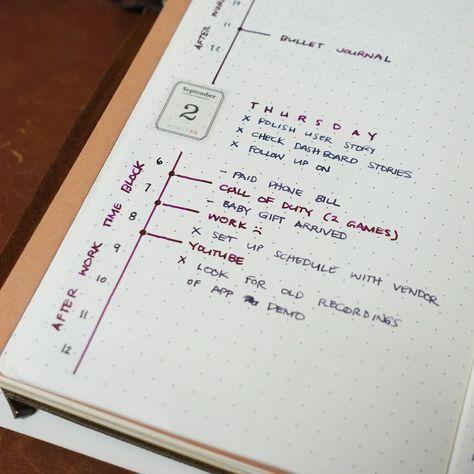 AFTER WORK
11
12
BULLET JOURNAL
September
2
THURSDAY
x POLISH USER STORY
x CHECK DASHBOARD STORIES
x FOLLOW UP ON
6
- PAID PHONE BILL
7
CALL OF DUTY (2 GAMES)
- BABY GIFT ARRIVED
8
WORK :(
x SET UP SCHEDULE WITH VENDOR
9
YOUTUBE
x LOOK FOR OLD RECORDINGS
OF APP DEMO
10
11
12
AFTER WORK TIME BLOCK